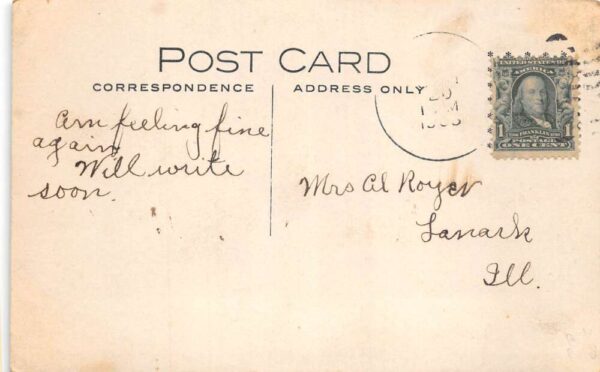 POST CARD
CORRESPONDENCE
ADDRESS ONLY
Am feeling fine
again
Will write
soon.
Mrs Al Royer
Lanark
Ill.
20
M
UNITED STATES OF
AMERICA
1
FRANKLIN
1
POSTAGE
ONE CENT